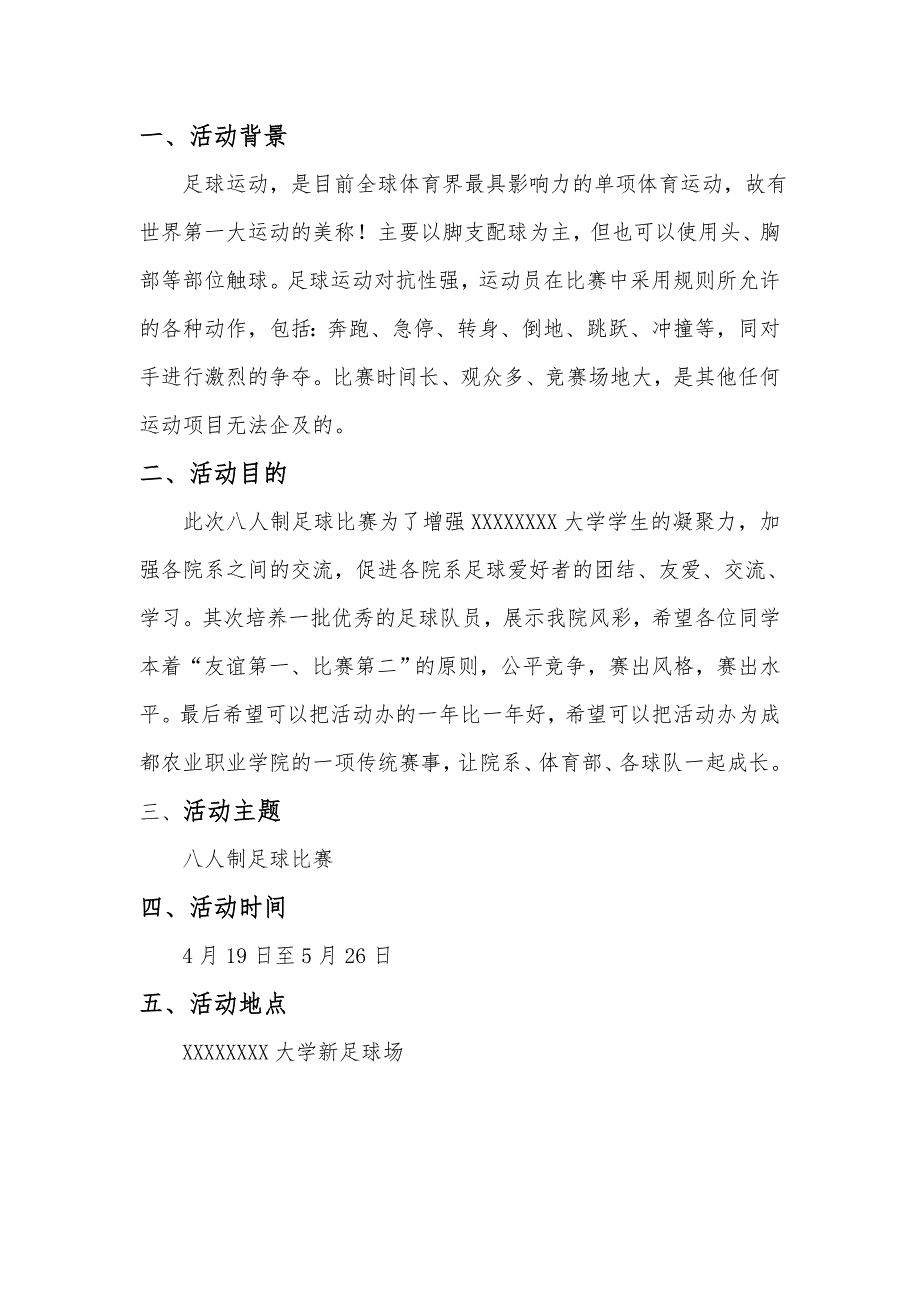 一、活动背景
足球运动，是目前全球体育界最具影响力的单项体育运动，故有
世界第一大运动的美称！主要以脚支配球为主，但也可以使用头、胸
部等部位触球。足球运动对抗性强，运动员在比赛中采用规则所允许
的各种动作，包括：奔跑、急停、转身、倒地、跳跃、冲撞等，同对
手进行激烈的争夺。比赛时间长、观众多、竞赛场地大，是其他任何
运动项目无法企及的。
二、活动目的
此次八人制足球比赛为了增强 XXXXXXXX 大学学生的凝聚力，加
强各院系之间的交流，促进各院系足球爱好者的团结、友爱、交流、
学习。其次培养一批优秀的足球队员，展示我院风彩，希望各位同学
本着“友谊第一、比赛第二”的原则，公平竞争，赛出风格，赛出水
平。最后希望可以把活动办的一年比一年好，希望可以把活动办为成
都农业职业学院的一项传统赛事，让院系、体育部、各球队一起成长。
三、活动主题
八人制足球比赛
四、活动时间
4 月 19 日至 5 月 26 日
五、活动地点
XXXXXXXX 大学新足球场